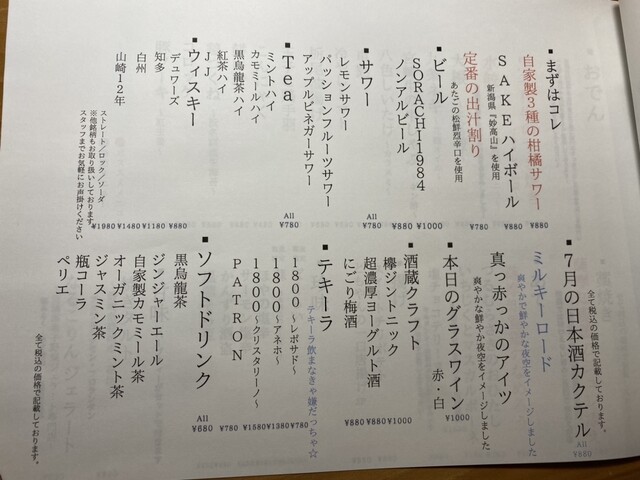 ■まずはコレ
自家製3種の柑橘サワー ¥880
SAKEハイボール ¥880
新潟県『妙高山』を使用
定番の出汁割り ¥780
あたごの松鮮烈辛口を使用
■ビール
SORACHI1984 ¥1000
ノンアルビール ¥880
■サワー All ¥780
レモンサワー
パッションフルーツサワー
アップルビネガーサワー
■Tea All ¥780
ミントハイ
カモミールハイ
黒烏龍茶ハイ
紅茶ハイ
JJ
■ウィスキー
デュワーズ ¥880
知多 ¥1180
白州 ¥1480
山崎12年 ¥1980
ストレート/ロック/ソーダ
※他銘柄もお取り扱いしております。
スタッフまでお気軽にお声掛けください
全て税込の価格で記載しております。
■7月の日本酒カクテル All ¥880
ミルキーロード
爽やかで鮮やかな夜空をイメージしました
真っ赤っかのアイツ
爽やかな鮮やか夜空をイメージしました
■本日のグラスワイン 赤・白 ¥1000
■酒蔵クラフト
欅ジントニック ¥1000
超濃厚ヨーグルト酒 ¥880
にごり梅酒 ¥880
■テキーラ
テキーラ飲まなきゃ嫌だっちゃ☆
1800~レポサド~ ¥780
1800~アネホ~ ¥1380
1800~クリスタリーノ~ ¥1580
PATRON ¥780
■ソフトドリンク All ¥680
黒烏龍茶
ジンジャーエール
自家製カモミール茶
オーガニックミント茶
ジャスミン茶
瓶コーラ
ペリエ
全て税込の価格で記載しております。